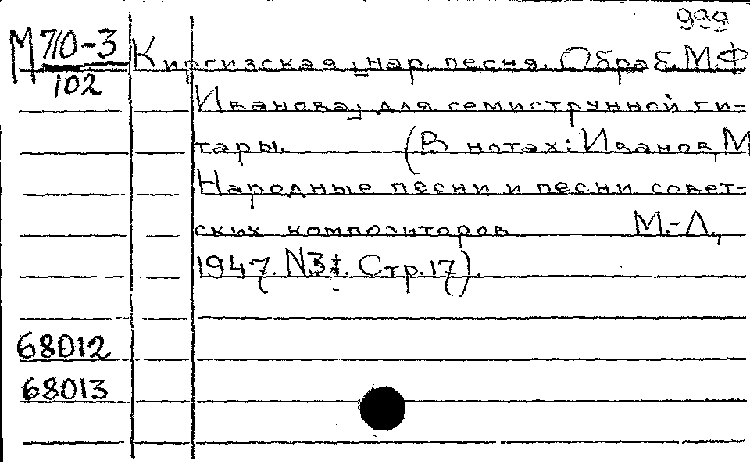 999
М 70-3
102
Киргизская нар. песня. Обраб. М.Ф.
Иванова, для семиструнной ги-
тары. (В нотах: Иванов, М.
Народные песни и песни совет-
ских композиторов. М.-Л.,
1947. Стр. 17).
68012
68013